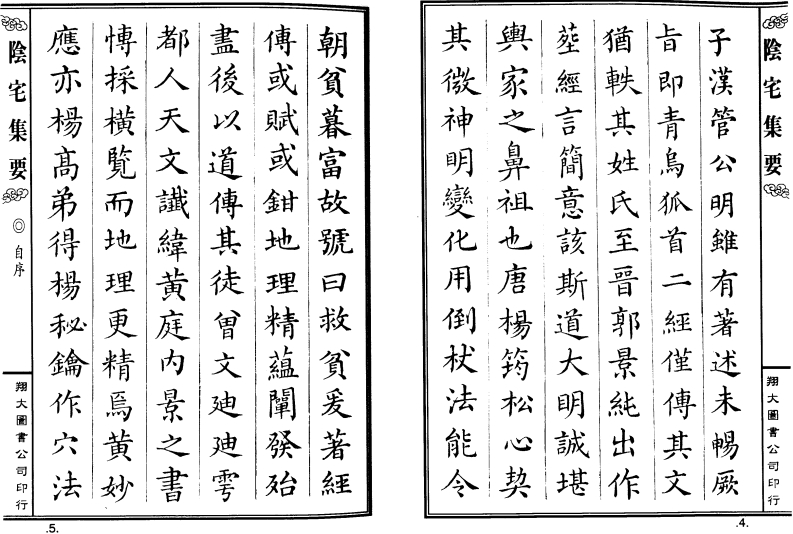 陰宅集要
翔大圖書公司印行
子漢管公明雖有著述未暢厥
旨即青烏狐首二經僅傳其文
猶軼其姓氏至晉郭景純出作
塟經言簡意該斯道大明誠堪
輿家之鼻祖也唐楊筠松心契
其微神明變化用倒杖法能令
.4.
朝貧暮富故號曰救貧爰著經
傳或賦或鉗地理精蘊闡發殆
盡後以道傳其徒曾文迪迪雩
都人天文讖緯黃庭內景之書
慱採橫覽而地理更精焉黃妙
應亦楊高弟得楊秘鑰作穴法
陰宅集要
◎自序
翔大圖書公司印行
.5.